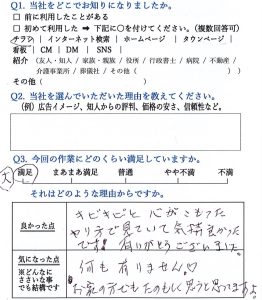 Q1. 当社をどこでお知りになりましたか。
□ 前に利用したことがある
□ 初めて利用した ➡ 下記に○を付けてください。（複数回答可）
チラシ | インターネット検索 | ホームページ | タウンページ |
看板 | CM | DM | SNS |
紹介 （友人・知人 / 家族・親族 / 役所 / 行政書士 / 病院 / 不動産 /
介護事業所 / 葬儀社 / その他（ ））
その他（ ）
Q2. 当社を選んでいただいた理由を教えてください。
（例）広告イメージ、知人からの評判、価格の安さ、信頼性など。
Q3. 今回の作業にどのくらい満足していますか。
大 満足 まあまあ満足 普通 やや不満 不満
それはどのような理由からですか。
良かった点
キビキビと 心がこもった
やり方で見ていて気持良かった
です。 有りがとうございました。
気になった点
※どんなに
ささいな事
でも結構です
何も有りません♡
お家の方でもたのもしく思うと思いますよ